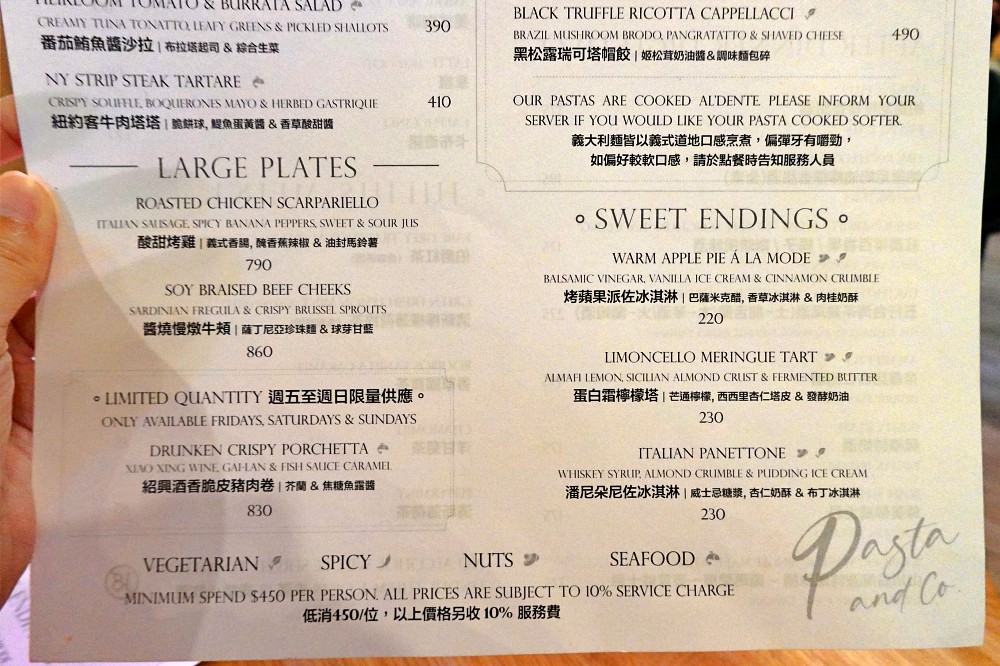 HEIRLOOM TOMATO & BURRATA SALAD
CREAMY TUNA TONATTO, LEAFY GREENS & PICKLED SHALLOTS 390
番茄鮪魚醬沙拉 | 布拉塔起司 & 綜合生菜
NY STRIP STEAK TARTARE
CRISPY SOUFFLE, BOQUERONES MAYO & HERBED GASTRIQUE 410
紐約客牛肉塔塔 | 脆餅球, 鯷魚蛋黃醬 & 香草酸甜醬
LARGE PLATES
ROASTED CHICKEN SCARPARIELLO
ITALIAN SAUSAGE, SPICY BANANA PEPPERS, SWEET & SOUR JUS
酸甜烤雞 | 義式香腸, 醃香蕉辣椒 & 油封馬鈴薯
790
SOY BRAISED BEEF CHEEKS
SARDINIAN FREGULA & CRISPY BRUSSEL SPROUTS
醬燒慢燉牛頰 | 薩丁尼亞珍珠麵 & 球芽甘藍
860
LIMITED QUANTITY 週五至週日限量供應。
ONLY AVAILABLE FRIDAYS, SATURDAYS & SUNDAYS
DRUNKEN CRISPY PORCHETTA
XIAO XING WINE, GAI-LAN & FISH SAUCE CARAMEL
紹興酒香脆皮豬肉卷 | 芥蘭 & 焦糖魚露醬
830
BLACK TRUFFLE RICOTTA CAPPELLACCI
BRAZIL MUSHROOM BRODO, PANGRATATTO & SHAVED CHEESE 490
黑松露瑞可塔帽餃 | 姬松茸奶油醬&調味麵包碎
OUR PASTAS ARE COOKED AL'DENTE. PLEASE INFORM YOUR
SERVER IF YOU WOULD LIKE YOUR PASTA COOKED SOFTER.
義大利麵皆以義式道地口感烹煮，偏彈牙有嚼勁，
如偏好較軟口感，請於點餐時告知服務人員
SWEET ENDINGS
WARM APPLE PIE Á LA MODE
BALSAMIC VINEGAR, VANILLA ICE CREAM & CINNAMON CRUMBLE
烤蘋果派佐冰淇淋 | 巴薩米克醋, 香草冰淇淋 & 肉桂奶酥
220
LIMONCELLO MERINGUE TART
ALMAFI LEMON, SICILIAN ALMOND CRUST & FERMENTED BUTTER
蛋白霜檸檬塔 | 芒通檸檬, 西西里杏仁塔皮 & 發酵奶油
230
ITALIAN PANETTONE
WHISKEY SYRUP, ALMOND CRUMBLE & PUDDING ICE CREAM
潘尼朵尼佐冰淇淋 | 威士忌糖漿, 杏仁奶酥 & 布丁冰淇淋
230
VEGETARIAN SPICY NUTS SEAFOOD
MINIMUM SPEND $450 PER PERSON. ALL PRICES ARE SUBJECT TO 10% SERVICE CHARGE
低消450/位，以上價格另收 10% 服務費
Pasta
and Co.